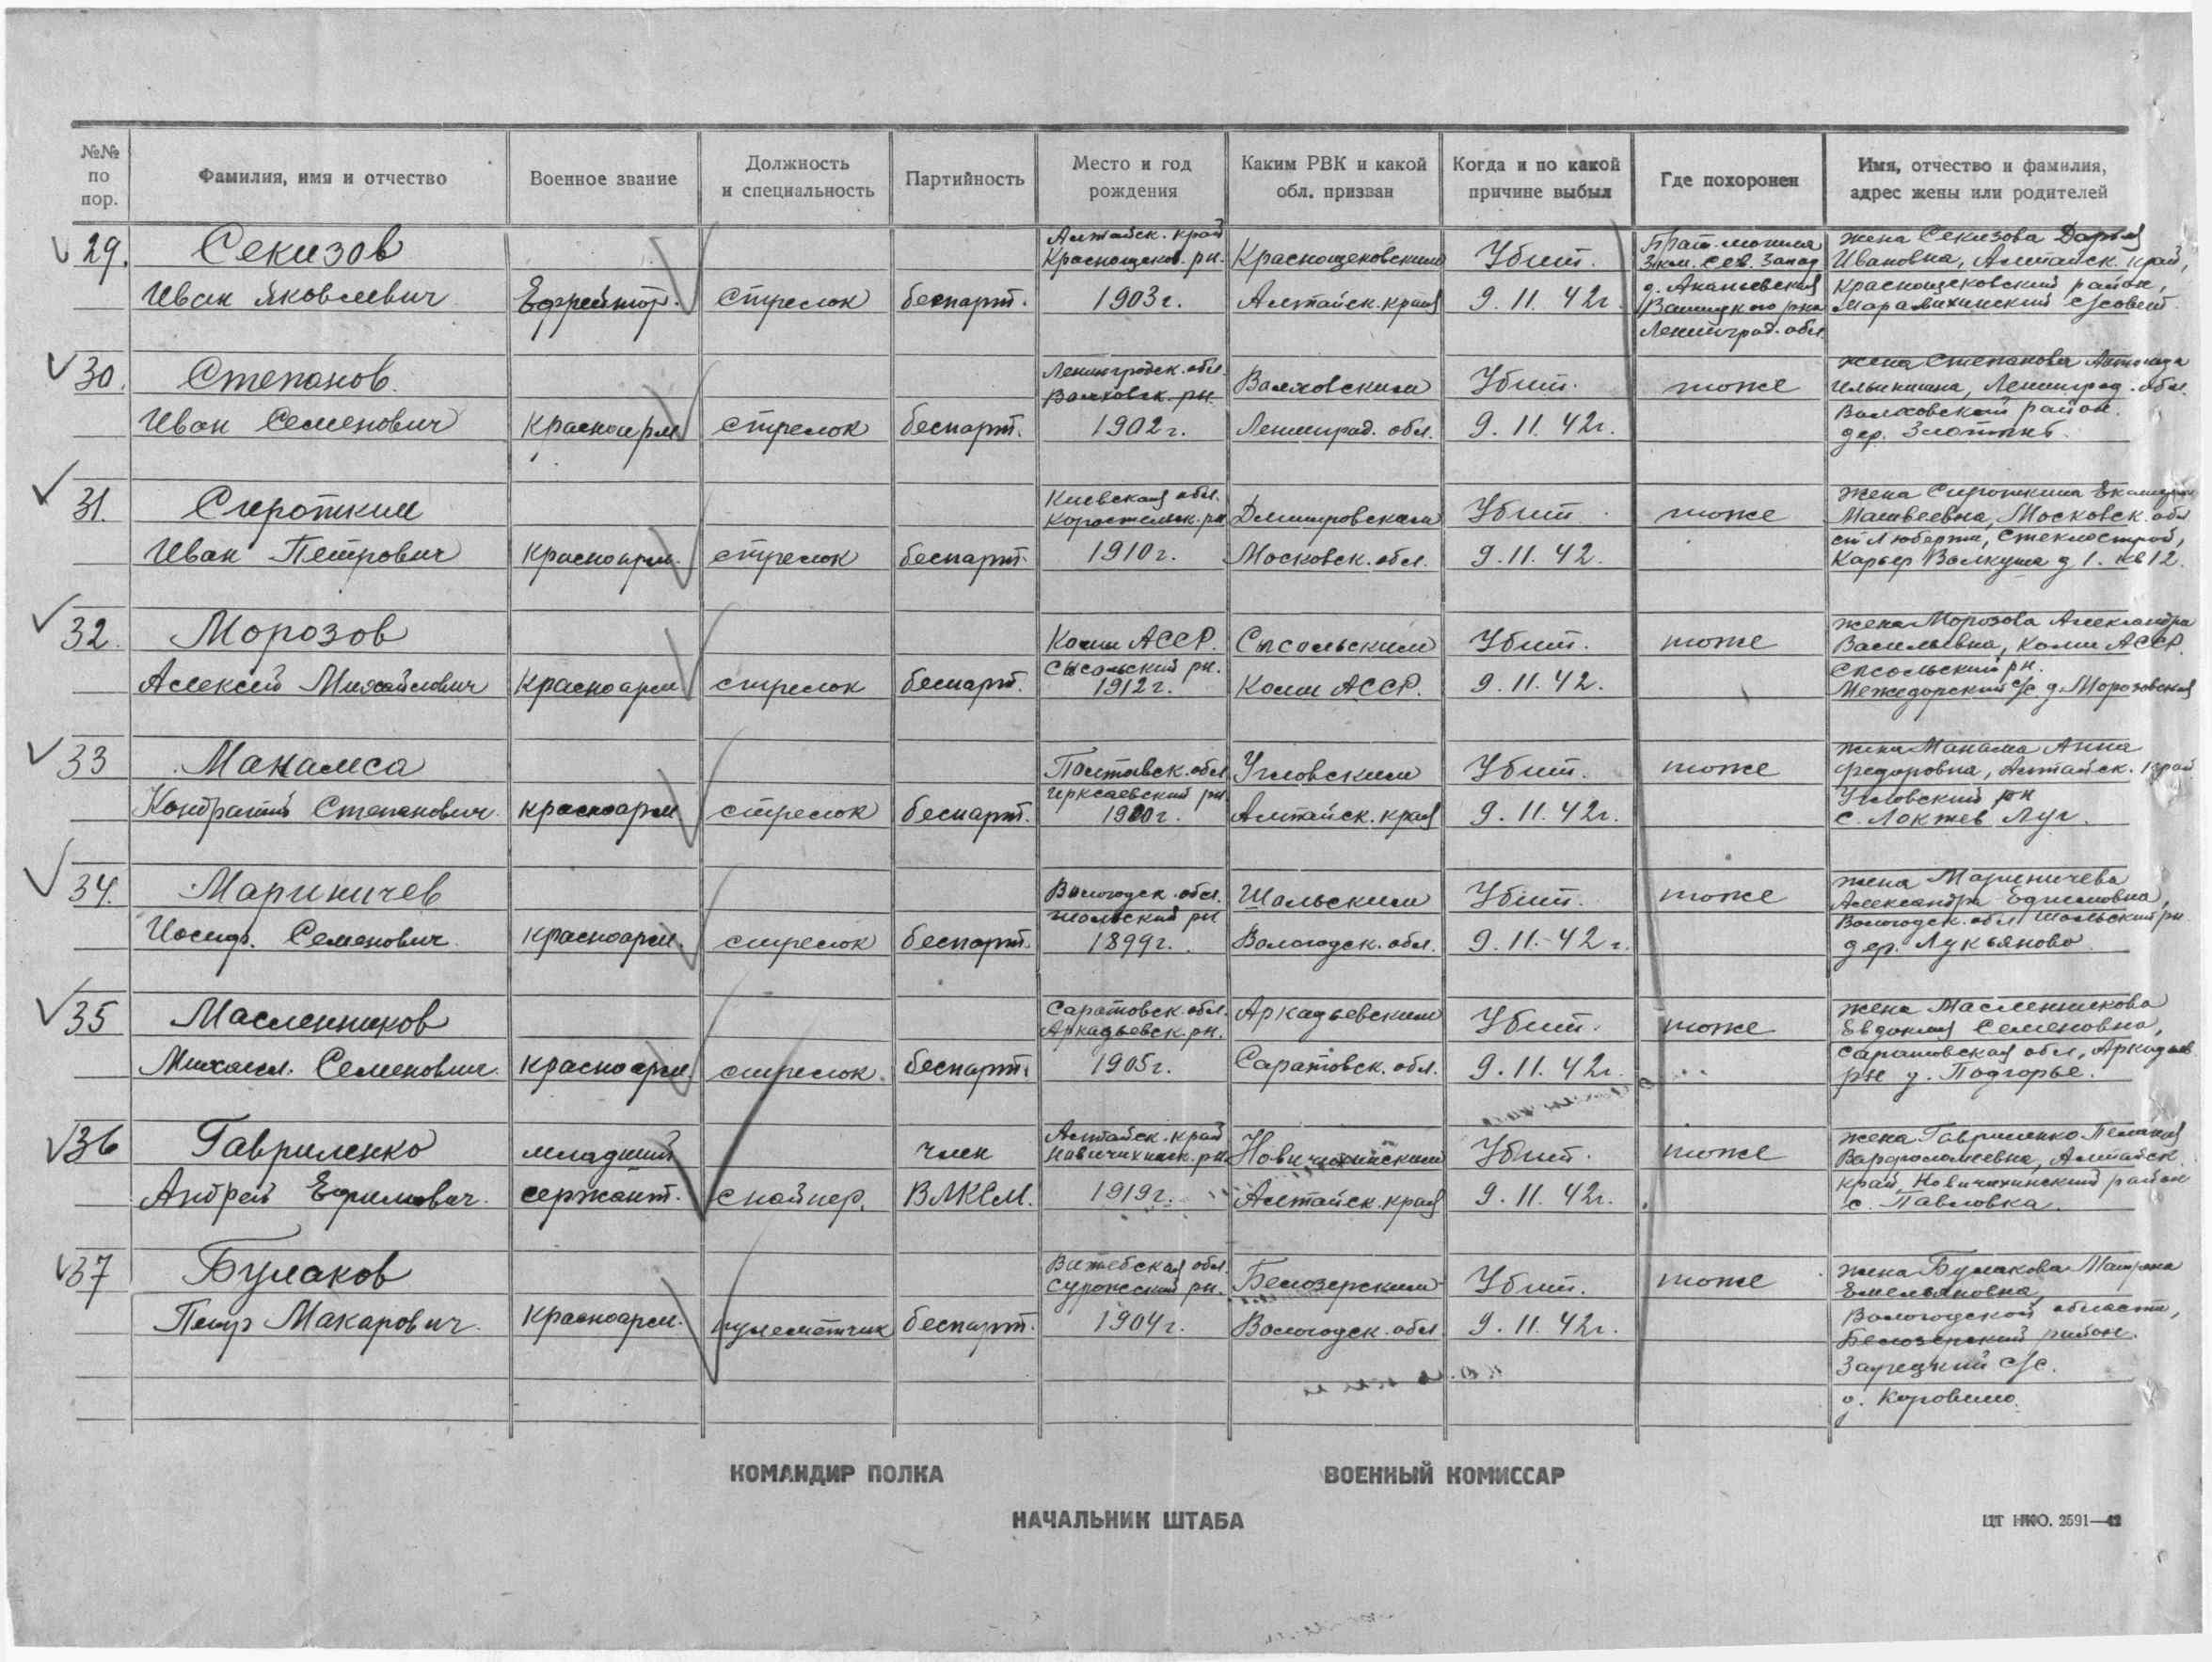 №№ по пор.
Фамилия, имя и отчество
Военное звание
Должность и специальность
Партийность
Место и год рождения
Каким РВК и какой обл. призван
Когда и по какой причине выбыл
Где похоронен
Имя, отчество и фамилия, адрес жены или родителей
29.
Секизов
Иван Яковлевич
Ефрейтор.
стрелок
беспарт.
Алтайск. край
Краснощеков. рн.
1903г.
Краснощековским
Алтайск. края
Убит.
9. 11. 42г
Брат. могила
3км. сев. запад
д. Ананьевская
Вашкуского рна
Ленинград. обл.
жена Секизова Дарья
Ивановна, Алтайск. край,
Краснощековский район,
Маралихинский с/совет
30.
Степанов
Иван Семенович
красноарм
стрелок
беспарт.
Ленинградск. обл.
Волховск. рн.
1902г.
Волховским
Ленинград. обл.
Убит.
9. 11. 42г.
тоже
жена Степанова
Ильинишна, Ленинград. обл.
Волховский район.
дер.
31.
Сироткин
Иван Петрович
красноарм.
стрелок
беспарт.
Киевская обл.
рн
1910г.
Дмитровским
Московск. обл.
Убит
9. 11. 42.
тоже
жена Сироткина
Матвеевна, Московск. обл
ст Люберцы, Стеклострой,
Карьер Волкуша д 1. кв 12.
32.
Морозов
Алексей Михайлович
красноарм
стрелок
беспарт.
Коми АССР.
Сысольский рн.
1912г.
Сысольским
Коми АССР.
Убит.
9. 11. 42.
тоже
жена Морозова Александра
Васильевна, Коми АССР.
Сысольский рн.
Межадорский с/с д. Морозовская
33
Макамса
Кондратий Степанович
красноарм
стрелок
беспарт.
Полтавск. обл
рн
19 0г.
Угловским
Алтайск. края
Убит.
9. 11. 42г.
тоже
жена Анна
Федоровна, Алтайск. край
Угловский рн
с. Локтев Луг.
34.
Мариничев
Иосиф. Семенович
красноарм.
стрелок
беспарт.
Вологодск. обл.
Шольский рн
1899г.
Шольским
Вологодск. обл.
Убит.
9. 11. 42г.
тоже
жена Мариничева
Александра Ефимовна,
Вологодск. обл. Шольский рн
дер. Лукьяново
35
Масленников
Михаил. Семенович
красноарм
стрелок.
беспарт.
Саратовск. обл.
Аркадьевск. рн.
1905г.
Аркадьевским
Саратовск. обл.
Убит.
9. 11. 42г.
тоже
жена Масленникова
Евдокия Семеновна,
Саратовская обл, Аркадьев.
рн д. Подгорье.
36
Гавриленко
Андрей Ефимович.
младший
сержант.
снайпер.
член
ВЛКСМ.
Алтайск. край
Новичихинск. рн
1919г.
Новичихинским
Алтайск. края
Убит.
9. 11. 42г.
тоже
жена Гавриленко
Варфоломеевна, Алтайск.
край, Новичихинский район
с. Павловка.
37
Булаков
Петр Макарович.
красноарм.
пулеметчик
беспарт.
Витебская обл.
Суражский рн.
1904г.
Белозерским
Вологодск. обл
Убит.
9. 11. 42г.
тоже
жена Булакова Матрена
Емельяновна,
Вологодской области,
Белозерский район.
Зарецкий с/с.
д. Коровино.
КОМАНДИР ПОЛКА
ВОЕННЫЙ КОМИССАР
НАЧАЛЬНИК ШТАБА
ЦТ НКО. 2591—42